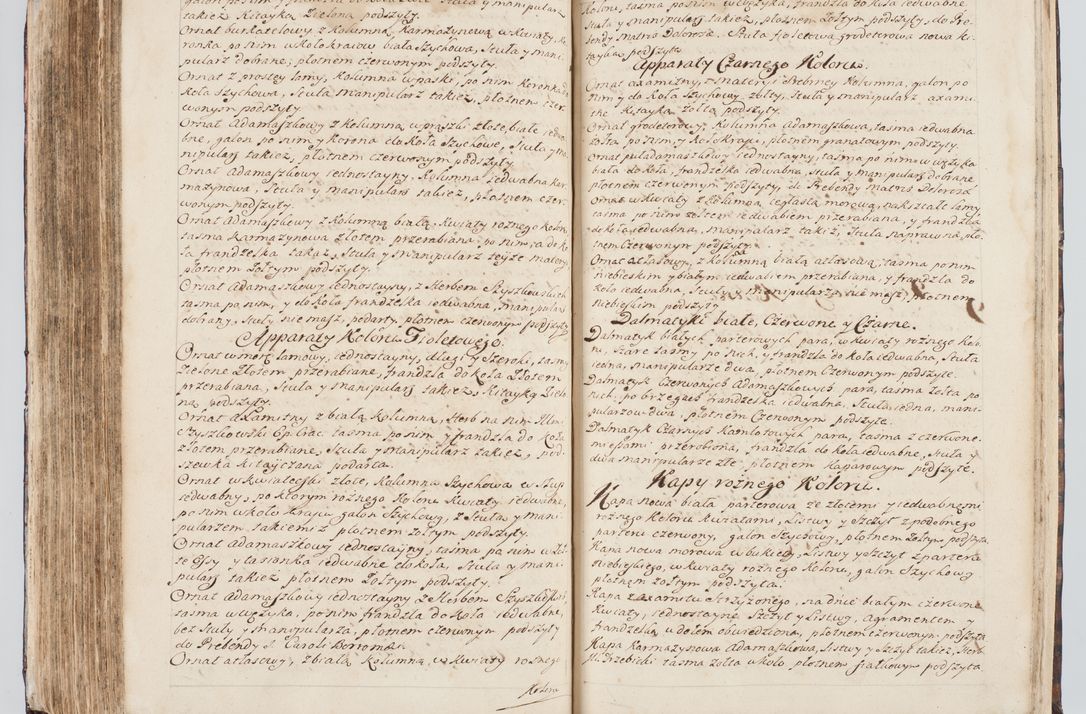 takież, Kitayką Zieloną podszyty.
Ornat burkatelowy z Kolumną Karmazynową w Kwiaty, Ko-
ronka po nim w koło kraiow biała Szychowa, Stuła y mani-
pularz dobrane, płotnem czerwonym podszyty.
Ornat z prostey lamy, Kolumna w paski, po nim Koronka do
koła Szychowa, Stuła Manipularz takież, płotnem czer-
wonym podszyty.
Ornat Adamaszkowy z Kolumną w prąszki złote, białe iedwa-
bne, galon po nim y Korona do koła Szychowe, Stuła y ma-
nipularz takież, płotnem czerwonym podszyty.
Ornat Adamaszkowy iednostayny, Kolumna iedwabna kar-
mazynowa, Stuła y manipularz takież, płotnem czer-
wonym podszyty.
Ornat Adamaszkowy z Kolumną białą, Kwiaty rożnego koloru,
tasma Karmazynowa Złotem przerabiana po nim, a do ko-
ła frandzelka takaż, Stuła y Manipularz teyże materyi,
płotnem Żołtym podszyty.
Ornat Adamaszkowy iednostayny, z Herbem Szyszkowskich
tasma po nim, y do koła frandzelka iedwabna, Manipularz
dobrany, Stuły nie masz, podarty, płotnem czerwonym podszyty
Apparaty Koloru Fioletowego.
Ornat w morę lamowy, iednostayny, długi y Szeroki, tasmą
Zielone Złotem przerabiane, frandzla do koła Złotem
przerabiana, Stuła y Manipularz takież, Kitayką Zielo-
ną podszyty.
Ornat Axamitny z białą Kolumną, Herb na nim Illmi
Szyszkowski Epi Crac: tasma po nim y frandzla do koła
złotem przerabiane, Stuła y Manipularz takież, pod-
szewka kitayczana podarta.
Ornat w Kwiateczki złote, Kolumna Szychowa w Słup
iedwabny, po ktorym rożnego Koloru Kwiaty iedwabne,
po nim w koło kraiu galon Szychowy, z Stułą y mani-
pularzem takiemi z płotnem żołtym podszyty.
Ornat Adamaszkowy iednostayny, tasma po nim w Żoł-
te y tasionka iedwabne do koła, Stuła y mani-
pularz takież płotnem Żołtym podszyty.
Ornat Adamaszkowy iednostayny z Herbem Szyszkowski,
tasma w użyka, po nim frandzla do koła iedwabne,
bez Stuły y Manipularza, płotnem czerwonym podszyty
do Prebendy S. Caroli Borromæi.
Ornat atłasowy, z białą Kolumną, w Kwiaty rożnego
Koloru
Koloru, tasma po nim w użyka, frandzla do koła iedwabne,
Stuła y manipularz takież, płotnem Żołtym podszyty, do Pre-
bendy Matris Dolorosæ. Stuła fioletowa grodeturowa nowa ki-
tayką podszyta
Apparaty Czarnego Koloru.
Ornat axamitny, z materyi Srebrney Kolumna, galon po
nim y do koła Szychowy żołty, Stuła y Manipularz axami-
tne Kitayką żołtą podszyty.
Ornat grodetorowy, Kolumna Adamaszkowa, tasma iedwabna
żołta po nim, y koło kraiu, płotnem granatowym podszyty.
Ornat puładamaszkowy iednostayny, tasma po nim w użyka
biała do koła, frandzelka iedwabna, Stuła y Manipularz dobrane
płotnem czerwonym podszyty, do Prebendy Matris Dolorosæ
Ornat w Kwiaty z Kolumną ceglastą morową, na kształt lamy,
tasma po nim żołtem iedwabiem przerabiana, y frandzla
do koła iedwabna, Manipularz takiż, Stuła naprawna, pło-
tnem Czerwonym podszyty.
Ornat Atłasowy, z kolumną białą atłasową, tasma po nim
niebieskim y białym iedwabiem przerabiana, y frandzla do
koła iedwabna, Stuły y Manipularza nie masz, płotnem
niebieskim podszyty.
Dalmatyki białe, Czerwone y Czarne.
Dalmatyk białych, parterowych para, w Kwiaty rożnego Kolo-
ru, Szare tasmy po nich, y frandzla do koła iedwabna, Stuła
iedna, Manipularze dwa, płotnem Czerwonym podszyte.
Dalmatyk Czerwonych Adamaszkowych para, tasma żołta po
nich, po brzegach frandzelka iedwabna, Stuła iedna, mani-
pularzow dwa, płotnem Czerwonym podszyte.
Dalmatyk Czarnych Kamlotowych para, tasma z czerwone-
mi pasami przerabiana, frandzla do koła iedwabne, Stuła y
dwa manipularze złe, płotnem kaparowym podszyte.
Kapy rożnego Koloru.
Kapa nowa biała parterowa ze złotemi y iedwabnemi
rożnego Koloru Kwiatami, Listwy y Szczyt z podobnego
parteru czerwony, galon Szychowy, płotnem Żołtym podszyta
Kapa nowa morowa w bukiety, Listwy y Szczyt z parteru
niebieskiego, w kwiaty rożnego Koloru, galon Szychowy
płotnem żołtym podszyta.
Kapa z axamitu Strzyżonego, na dnie białym czerwone
Kwiaty, iednostayne Szczyt y Listwy, agramentem y
frandzelką w dołem obwiedziona, płotnem czerwonym podszyta
Kapa Karmazynowa Adamaszkowa, Listwy y Szczyt takież, Herb
Illi Trzebicki tasma żołta w koło płotnem fiałkowym podszyta